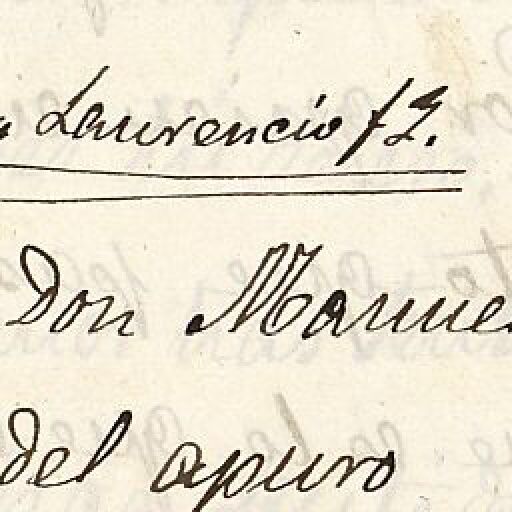 Laurencio
Don Manuel
del apuro